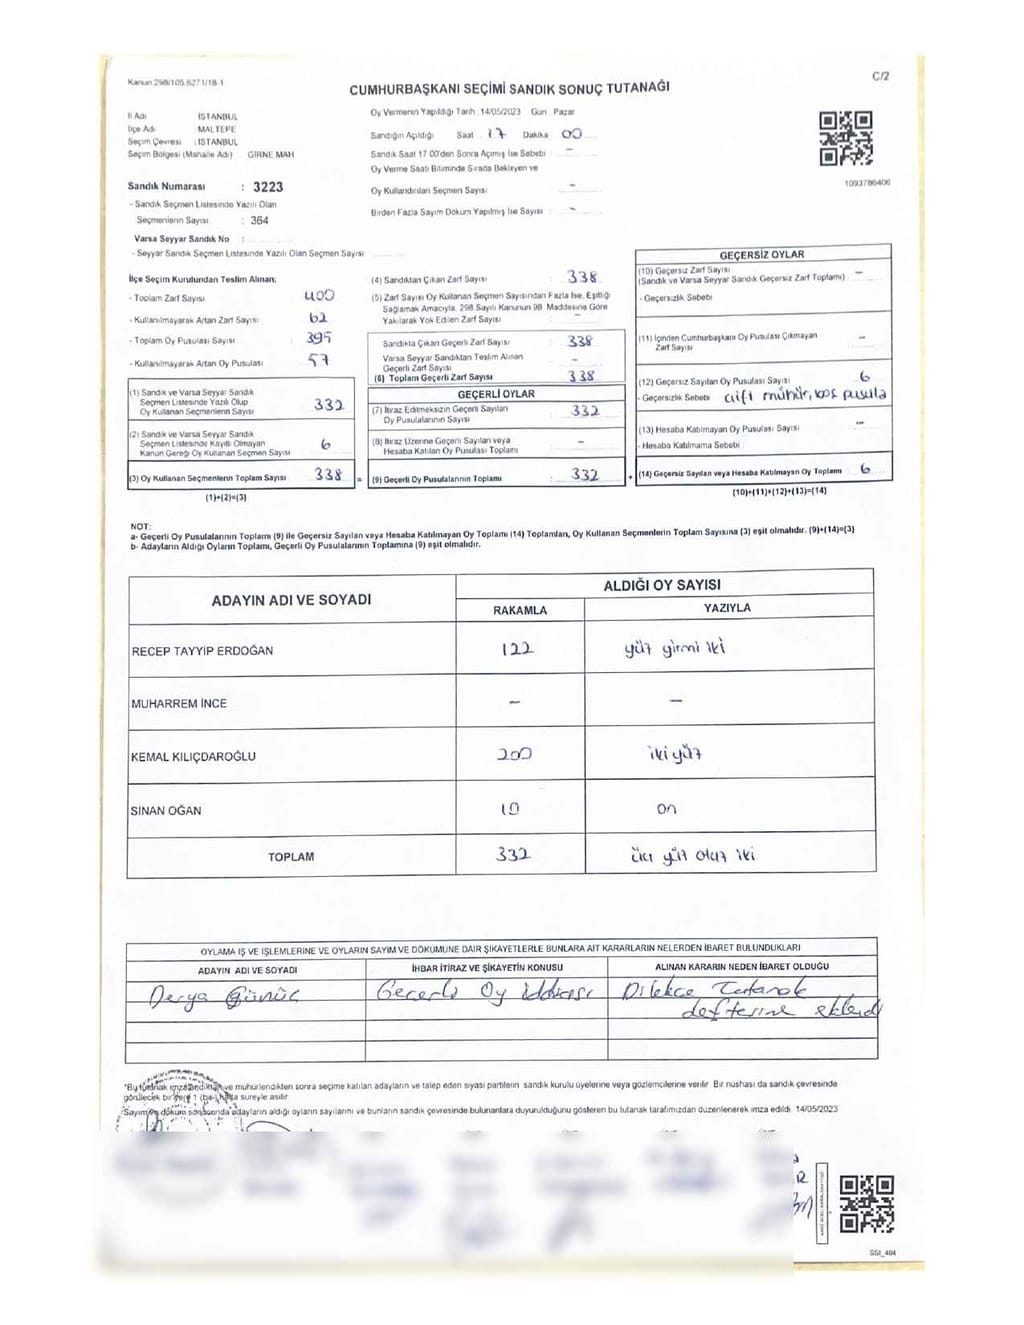 Kanun 298/105,6271/18-1
C/2
CUMHURBAŞKANI SEÇİMİ SANDIK SONUÇ TUTANAĞI
İl Adı : İSTANBUL
İlçe Adı MALTEPE
Seçim Çevresi : İSTANBUL
Seçim Bölgesi (Mahalle Adı) GİRNE MAH
Sandık Numarası : 3223
- Sandık Seçmen Listesinde Yazılı Olan
Seçmenlerin Sayısı : 364
Varsa Seyyar Sandık No :
- Seyyar Sandık Seçmen Listesinde Yazılı Olan Seçmen Sayısı:
Oy Vermenin Yapıldığı Tarih 14/05/2023 Gün Pazar
Sandığın Açıldığı Saat 17 Dakika 00
Sandık Saat 17 00'den Sonra Açılmış İse Sebebi : -
Oy Verme Saati Bitiminde Sırada Bekleyen ve
Oy Kullandırılan Seçmen Sayısı : -
Birden Fazla Sayım Döküm Yapılmış İse Sayısı : -
1093786406
İlçe Seçim Kurulundan Teslim Alınan;
- Toplam Zarf Sayısı : 400
- Kullanılmayarak Artan Zarf Sayısı : 62
- Toplam Oy Pusulası Sayısı : 395
- Kullanılmayarak Artan Oy Pusulası : 57
(1) Sandık ve Varsa Seyyar Sandık
Seçmen Listesinde Yazılı Olup
Oy Kullanan Seçmenlerin Sayısı 332
(2) Sandık ve Varsa Seyyar Sandık
Seçmen Listesinde Kayıtlı Olmayan
Kanun Gereği Oy Kullanan Seçmen Sayısı 6
(3) Oy Kullanan Seçmenlerin Toplam Sayısı 338 =
(1)+(2)=(3)
(4) Sandıktan Çıkan Zarf Sayısı : 338
(5) Zarf Sayısı Oy Kullanan Seçmen Sayısından Fazla İse, Eşitliği
Sağlamak Amacıyla, 298 Sayılı Kanunun 98 Maddesine Göre
Yakılarak Yok Edilen Zarf Sayısı : -
Sandıkta Çıkan Geçerli Zarf Sayısı : 338
Varsa Seyyar Sandıktan Teslim Alınan
Geçerli Zarf Sayısı : -
(6) Toplam Geçerli Zarf Sayısı : 338
GEÇERLİ OYLAR
(7) İtiraz Edilmeksizin Geçerli Sayılan
Oy Pusulalarının Sayısı : 332
(8) İtiraz Üzerine Geçerli Sayılan veya
Hesaba Katılan Oy Pusulası Toplamı : -
(9) Geçerli Oy Pusulalarının Toplamı : 332 +
GEÇERSİZ OYLAR
(10) Geçersiz Zarf Sayısı
(Sandık ve Varsa Seyyar Sandık Geçersiz Zarf Toplamı) : -
- Geçersizlik Sebebi :
(11) İçinden Cumhurbaşkanı Oy Pusulası Çıkmayan
Zarf Sayısı : -
(12) Geçersiz Sayılan Oy Pusulası Sayısı : 6
- Geçersizlik Sebebi : çift mühür, boş pusula
(13) Hesaba Katılmayan Oy Pusulası Sayısı : -
- Hesaba Katılmama Sebebi :
(14) Geçersiz Sayılan veya Hesaba Katılmayan Oy Toplamı : 6
(10)+(11)+(12)+(13)=(14)
NOT:
a- Geçerli Oy Pusulalarının Toplamı (9) ile Geçersiz Sayılan veya Hesaba Katılmayan Oy Toplamı (14) Toplamları, Oy Kullanan Seçmenlerin Toplam Sayısına (3) eşit olmalıdır. (9)+(14)=(3)
b- Adayların Aldığı Oyların Toplamı, Geçerli Oy Pusulalarının Toplamına (9) eşit olmalıdır.
ADAYIN ADI VE SOYADI ALDIĞI OY SAYISI
RAKAMLA YAZIYLA
RECEP TAYYİP ERDOĞAN 122 yüz yirmi iki
MUHARREM İNCE - -
KEMAL KILIÇDAROĞLU 200 iki yüz
SİNAN OĞAN 10 on
TOPLAM 332 üç yüz otuz iki
OYLAMA İŞ VE İŞLEMLERİNE VE OYLARIN SAYIM VE DÖKÜMÜNE DAİR ŞİKAYETLERLE BUNLARA AİT KARARLARIN NELERDEN İBARET BULUNDUKLARI
ADAYIN ADI VE SOYADI İHBAR İTİRAZ VE ŞİKAYETİN KONUSU ALINAN KARARIN NEDEN İBARET OLDUĞU
Derya Geçerli Oy iddiası Dilekçe Tutanak
defterine eklendi
"Bu tutanak imzalandıktan ve mühürlendikten sonra seçime katılan adayların ve talep eden siyasi partilerin sandık kurulu üyelerine veya gözlemcilerine verilir. Bir nushası da sandık çevresinde
görülecek bir yere 1 (bir) hafta süreyle asılır
Sayım ve döküm sonrasında adayların aldığı oyların sayılarını ve bunların sandık çevresinde bulunanlara duyurulduğunu gösteren bu tutanak tarafımızdan düzenlenerek imza edildi. 14/05/2023
SSI_404